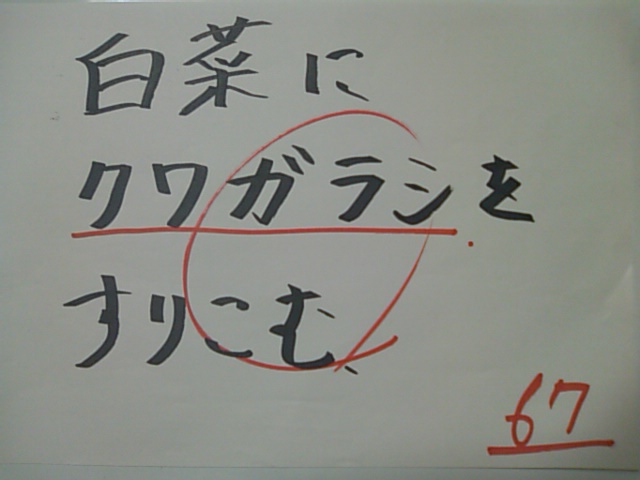 白菜に
クワガラシを
すりこむ、
67